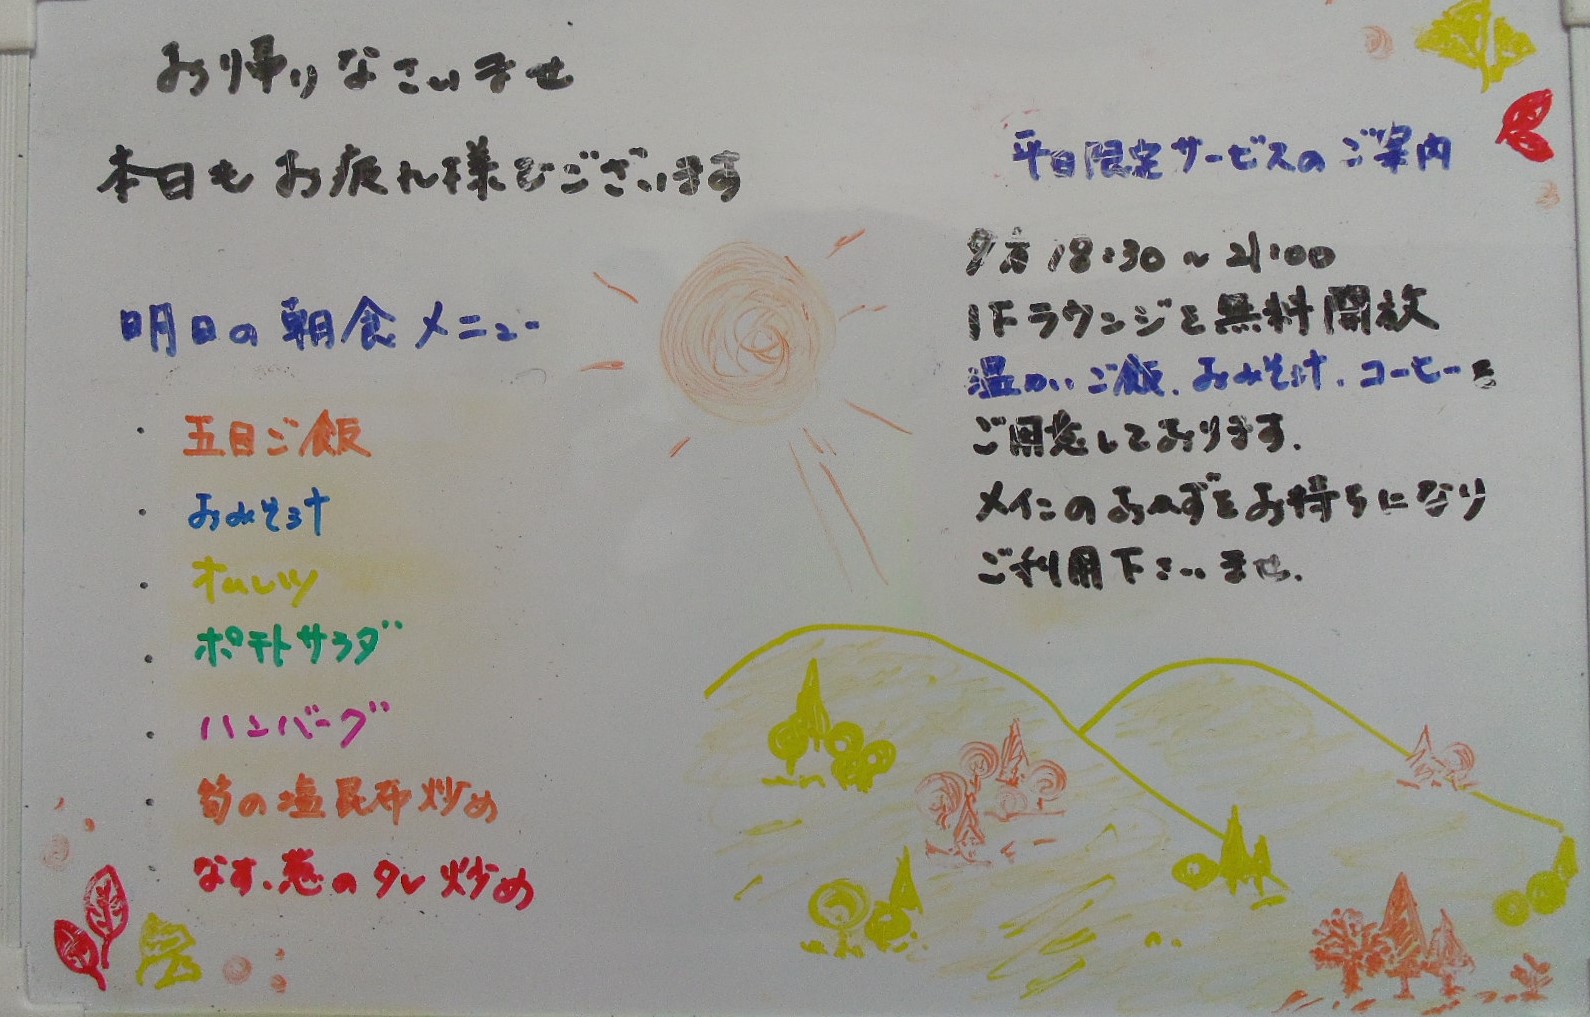 お帰りなさいませ
本日もお疲れ様でございます
明日の朝食メニュー
・五目ご飯
・おみそ汁
・オムレツ
・ポテトサラダ
・ハンバーグ
・筍の塩昆布炒め
・なす、葱のタレ炒め
平日限定サービスのご案内
夕方18:30～21:00
1Fラウンジを無料開放
温かいご飯、おみそ汁、コーヒーを
ご用意しております。
メインのおかずをお持ちになり
ご利用下さいませ。